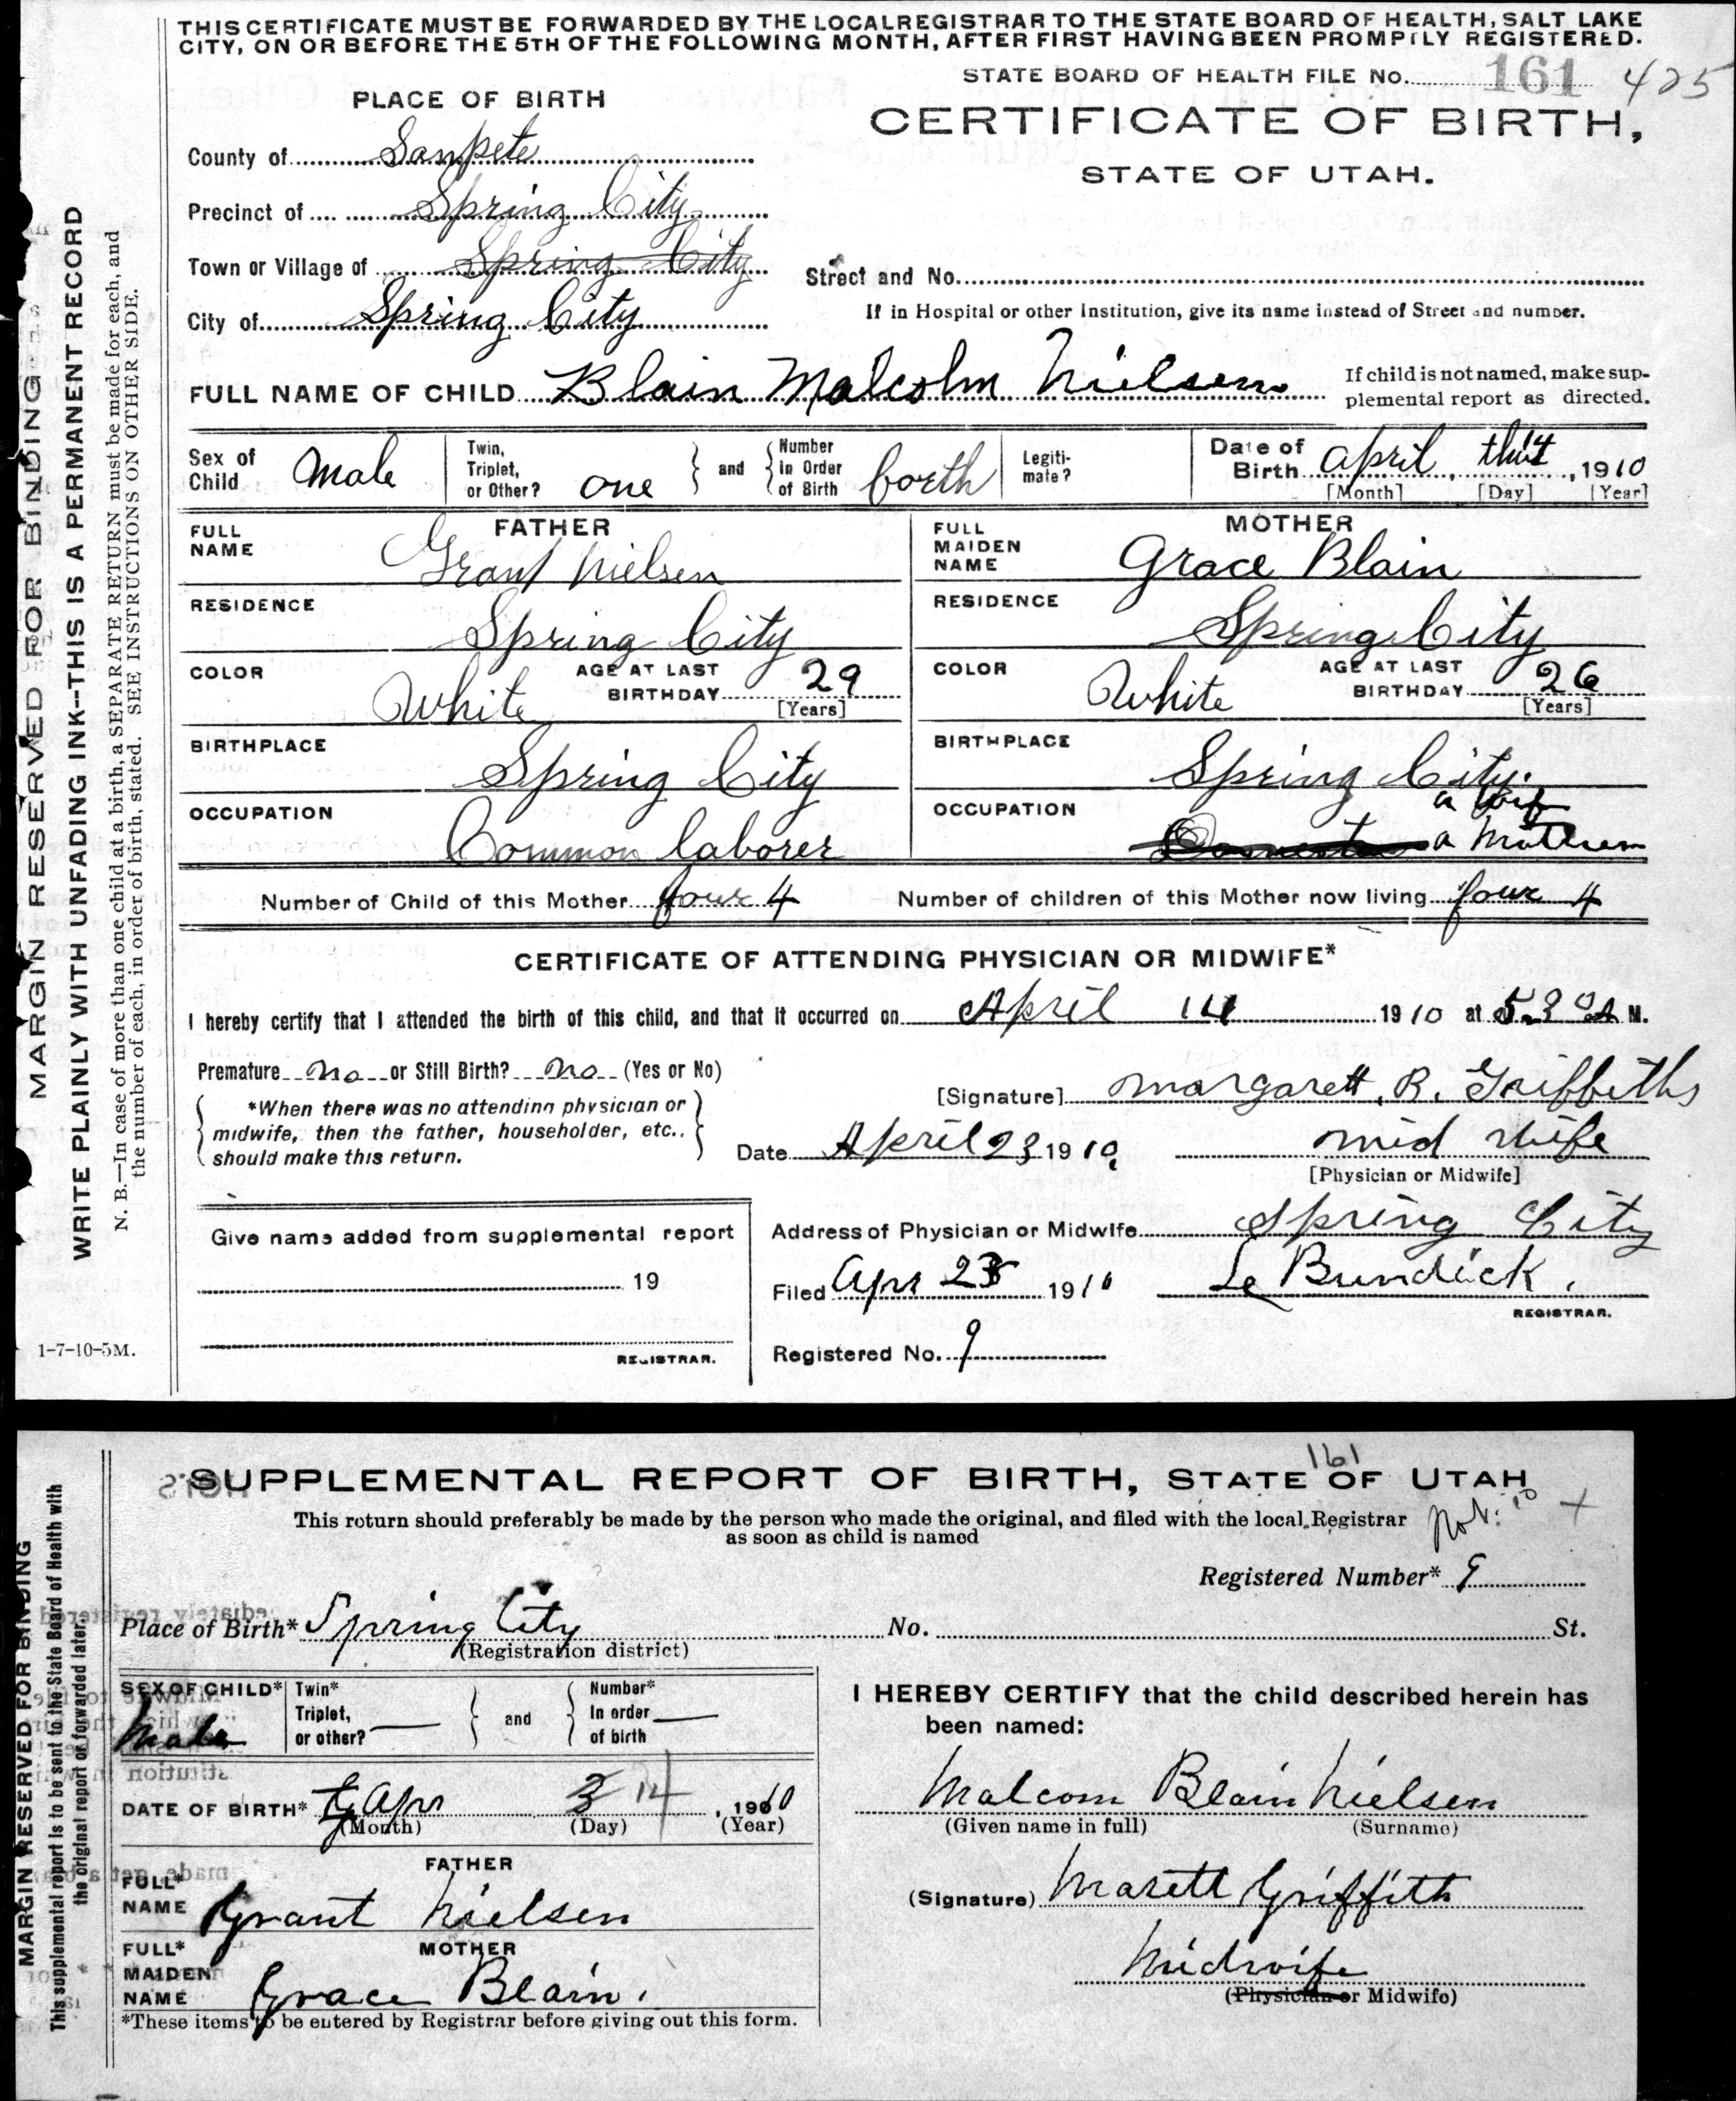 THIS CERTIFICATE MUST BE FORWARDED BY THE LOCAL REGISTRAR TO THE STATE BOARD OF HEALTH, SALT LAKE
CITY, ON OR BEFORE THE 5TH OF THE FOLLOWING MONTH, AFTER FIRST HAVING BEEN PROMPTLY REGISTERED.
STATE BOARD OF HEALTH FILE No. 161 425
PLACE OF BIRTH
CERTIFICATE OF BIRTH,
STATE OF UTAH.
County of Sanpete
Precinct of Spring City
Town or Village of Spring City
Street and No.
City of Spring City
If in Hospital or other Institution, give its name instead of Street and number.
FULL NAME OF CHILD Blain Malcolm Nielsen
If child is not named, make sup-
plemental report as directed.
Sex of Child Male
Twin, Triplet, or Other? one
and
Number In Order of Birth forth
Legiti-
mate?
Date of Birth April 14, 1910
[Month] [Day] [Year]
FATHER
FULL NAME Grant Nielsen
MOTHER
FULL MAIDEN NAME Grace Blain
RESIDENCE Spring City
RESIDENCE Spring City
COLOR White AGE AT LAST BIRTHDAY 29 [Years]
COLOR White AGE AT LAST BIRTHDAY 26 [Years]
BIRTHPLACE Spring City
BIRTHPLACE Spring City.
OCCUPATION Common laborer
OCCUPATION a wife
a Mother
Number of Child of this Mother four 4
Number of children of this Mother now living four 4
CERTIFICATE OF ATTENDING PHYSICIAN OR MIDWIFE*
I hereby certify that I attended the birth of this child, and that it occurred on April 14 1910 at 5.30 A M.
Premature no or Still Birth? no (Yes or No)
*When there was no attending physician or
midwife, then the father, householder, etc.,
should make this return.
[Signature] Margarett. R. Griffiths
Date April 23 1910,
mid wife
[Physician or Midwife]
Give name added from supplemental report
19
REGISTRAR.
Address of Physician or Midwife Spring City
Filed Apr 23 1910
Bundick.
REGISTRAR.
Registered No. 9
MARGIN RESERVED FOR BINDING
WRITE PLAINLY WITH UNFADING INK--THIS IS A PERMANENT RECORD
N. B.—In case of more than one child at a birth, a SEPARATE RETURN must be made for each, and
the number of each, in order of birth, stated. SEE INSTRUCTIONS ON OTHER SIDE.
1-7-10-5M.
161
SUPPLEMENTAL REPORT OF BIRTH, STATE OF UTAH
This return should preferably be made by the person who made the original, and filed with the local Registrar
as soon as child is named
Registered Number* 9
Place of Birth* Spring City No. St.
(Registration district)
SEX OF CHILD* Male
Twin* Triplet, or other?
and
Number* In order of birth
DATE OF BIRTH* Apr 3 14, 1910
(Month) (Day) (Year)
FATHER
FULL* NAME Grant Nielsen
MOTHER
FULL* MAIDEN NAME Grace Blain.
*These items to be entered by Registrar before giving out this form.
I HEREBY CERTIFY that the child described herein has
been named:
Malcom Blain Nielsen
(Given name in full) (Surname)
(Signature) Marett Griffith
Midwife
(Physician or Midwife)
MARGIN RESERVED FOR BINDING
This supplemental report is to be sent to the State Board of Health with
the original report or forwarded later.